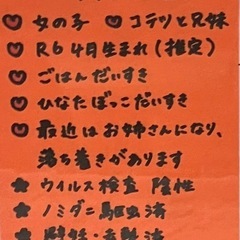 ♥ 女の子 ♥ コテツと兄妹
♥ R6 4月生まれ(推定)
♥ ごはんだいすき
♥ ひなたぼっこだいすき
♥ 最近はお姉さんになり、
落ち着きがあります
★ ウイルス検査 陰性
★ ノミダニ駆虫済